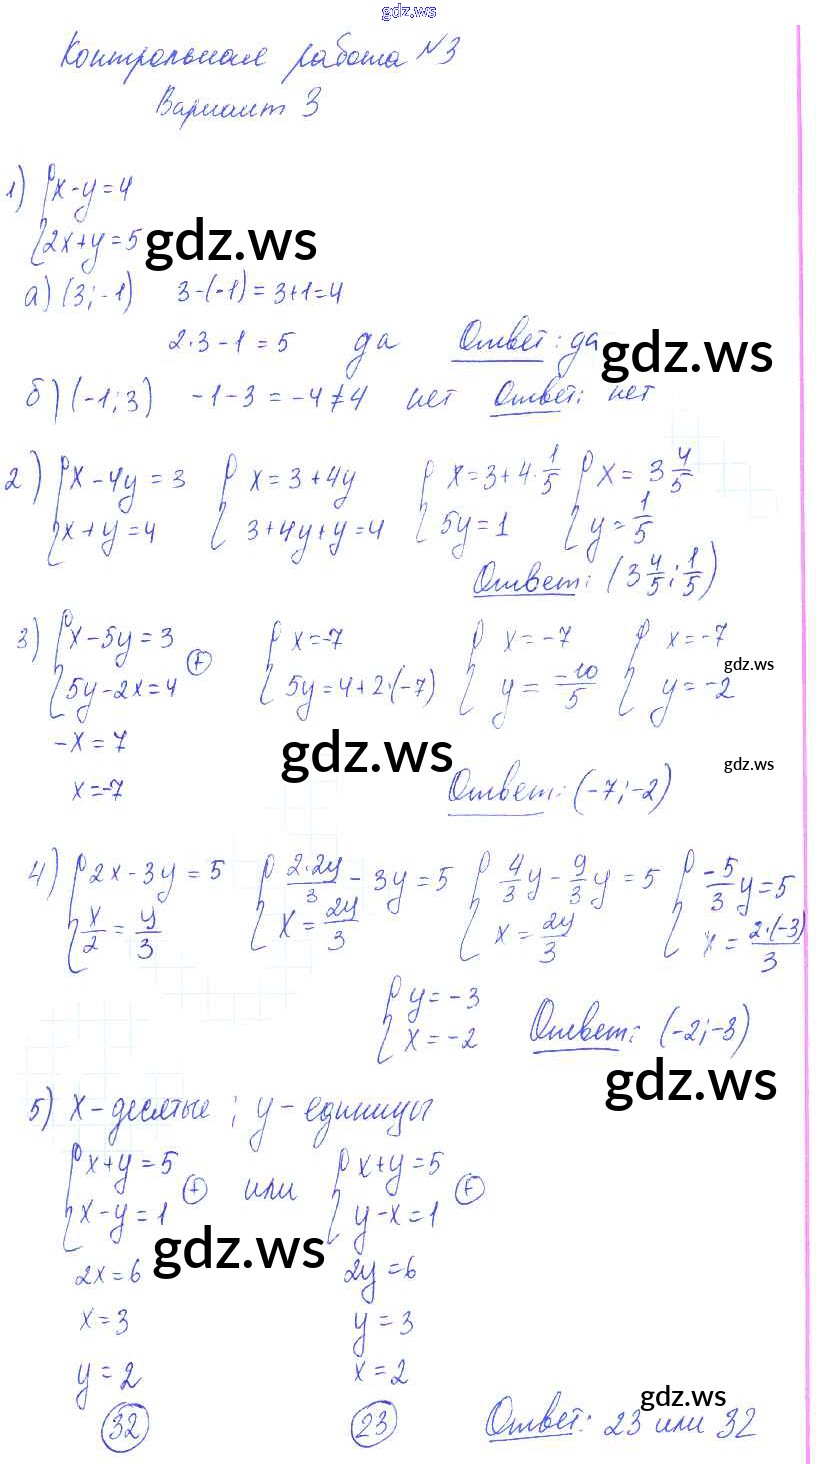 gdz.ws
Контрольная работа №3
Вариант 3
1) { x - y = 4
{ 2x + y = 5
gdz.ws
а) (3; -1) 3-(-1) = 3+1=4
2·3 - 1 = 5 да Ответ: да
gdz.ws
б) (-1; 3) -1 - 3 = -4 ≠ 4 нет Ответ: нет
2) { x - 4y = 3 { x = 3 + 4y { x = 3 + 4·1/5 { x = 3 4/5
{ x + y = 4 { 3+4y+y = 4 { 5y = 1 { y = 1/5
Ответ: (3 4/5; 1/5)
3) { x - 5y = 3 (+) { x = -7 { x = -7 { x = -7
{ 5y - 2x = 4 { 5y = 4+2·(-7) { y = -10/5 { y = -2
gdz.ws
-x = 7
gdz.ws
gdz.ws
x = -7 Ответ: (-7; -2)
4) { 2x - 3y = 5 { 2·2y/3 - 3y = 5 { 4/3 y - 9/3 y = 5 { -5/3 y = 5
{ x/2 = y/3 { x = 2y/3 { x = 2y/3 { x = 2·(-3)/3
{ y = -3
{ x = -2 Ответ: (-2; -3)
gdz.ws
5) x - десятые ; y - единицы
{ x + y = 5 (+) или { x + y = 5 (+)
{ x - y = 1 { y - x = 1
gdz.ws
2x = 6 2y = 6
x = 3 y = 3
y = 2 x = 2
gdz.ws
32 23 Ответ: 23 или 32